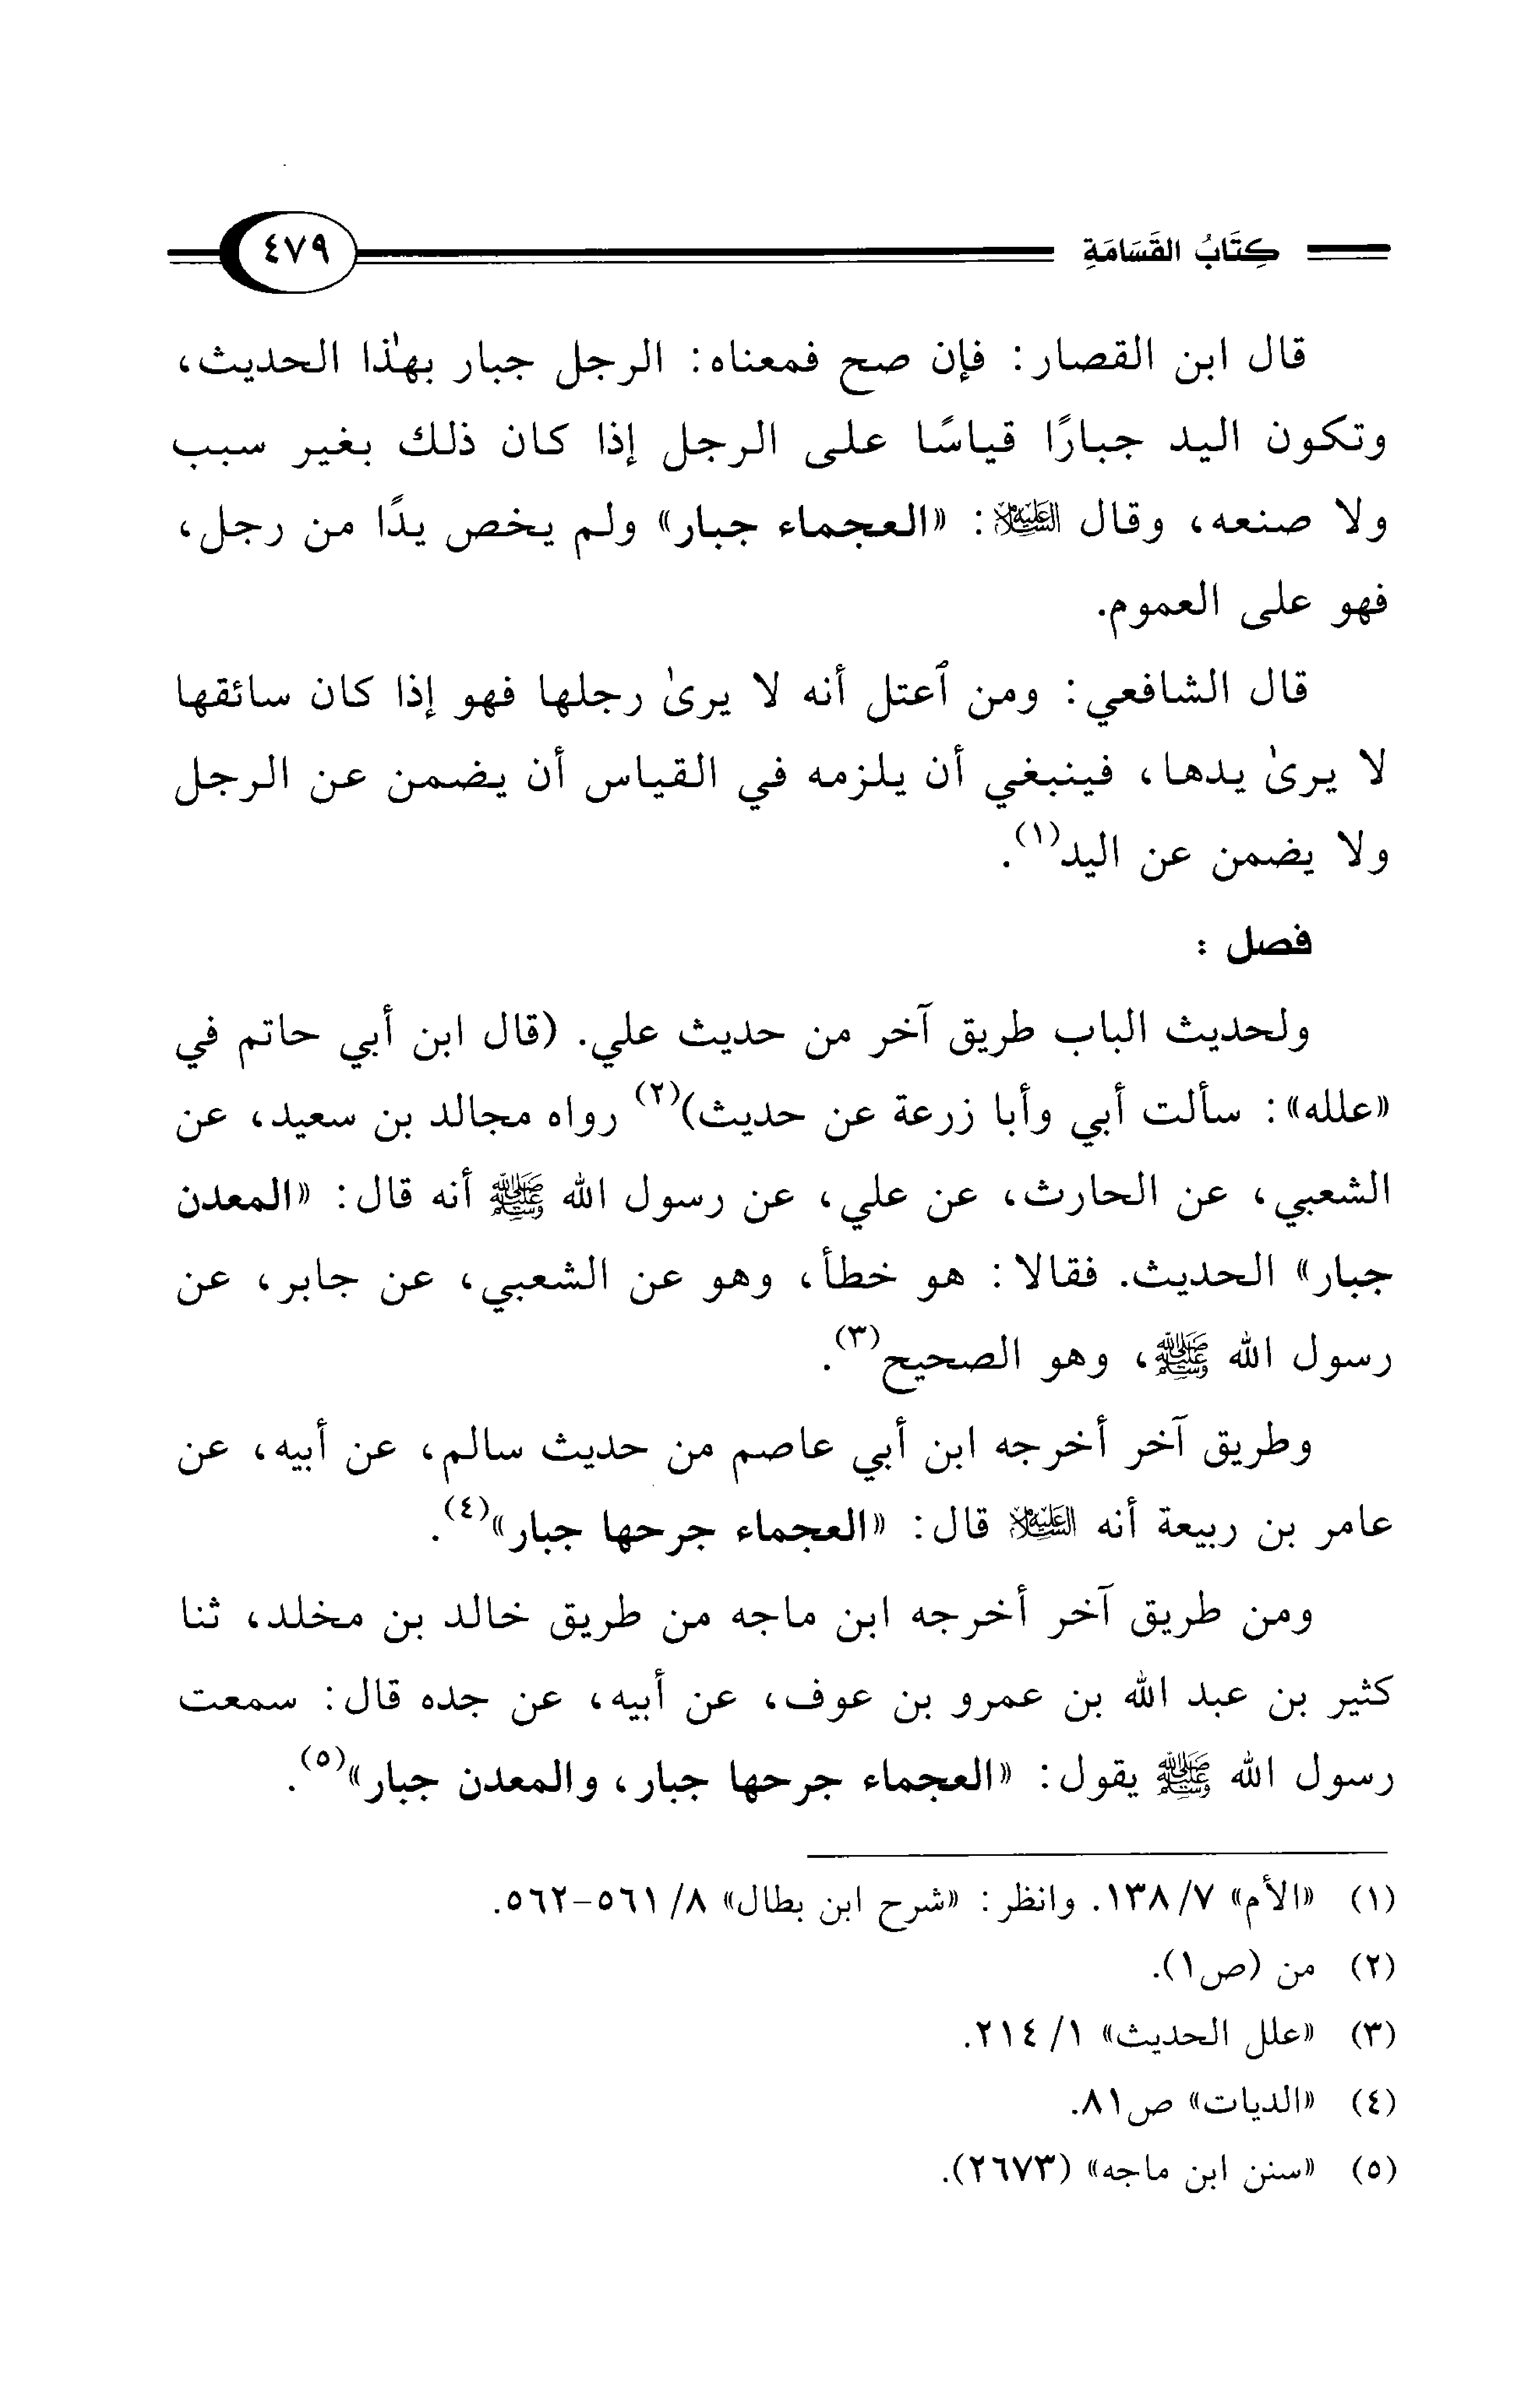 كِتَابُ القَسَامَةِ ٤٧٩
قال ابن القصار: فإن صح فمعناه: الرجل جبار بهٰذا الحديث،
وتكون اليد جبارًا قياسًا على الرجل إذا كان ذلك بغير سبب
ولا صنعه، وقال عليه السلام: «العجماء جبار» ولم يخص يدًا من رجل،
فهو على العموم.
قال الشافعي: ومن ٱعتل أنه لا يرىٰ رجلها فهو إذا كان سائقها
لا يرىٰ يدها، فينبغي أن يلزمه في القياس أن يضمن عن الرجل
ولا يضمن عن اليد(١).
فصل :
ولحديث الباب طريق آخر من حديث علي. (قال ابن أبي حاتم في
«علله»: سألت أبي وأبا زرعة عن حديث)(٢) رواه مجالد بن سعيد، عن
الشعبي، عن الحارث، عن علي، عن رسول الله ﷺ أنه قال: «المعدن
جبار» الحديث. فقالا: هو خطأ، وهو عن الشعبي، عن جابر، عن
رسول الله ﷺ، وهو الصحيح(٣).
وطريق آخر أخرجه ابن أبي عاصم من حديث سالم، عن أبيه، عن
عامر بن ربيعة أنه عليه السلام قال: «العجماء جرحها جبار»(٤).
ومن طريق آخر أخرجه ابن ماجه من طريق خالد بن مخلد، ثنا
كثير بن عبد الله بن عمرو بن عوف، عن أبيه، عن جده قال: سمعت
رسول الله ﷺ يقول: «العجماء جرحها جبار، والمعدن جبار»(٥).
(١) «الأم» ٧/ ١٣٨. وانظر: «شرح ابن بطال» ٨/ ٥٦١-٥٦٢.
(٢) من (ص١).
(٣) «علل الحديث» ١/ ٢١٤.
(٤) «الديات» ص٨١.
(٥) «سنن ابن ماجه» (٢٦٧٣).